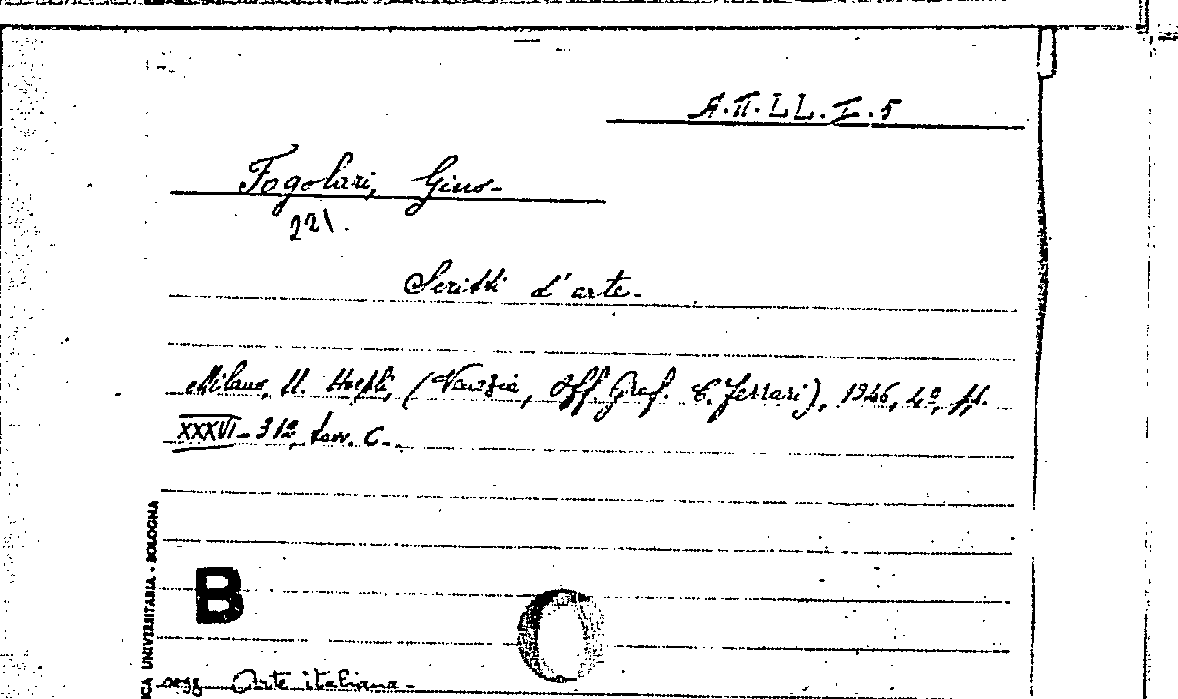 A.M.LL.I.5
Fogolari, Gino-
221.
Scritti d'arte-
Milano, U. Hoepli, (Venezia, Off. Graf. C. Ferrari), 1946, 4º, pp.
XXXVI-312, tav. C.
B
ICA UNIVERSITARIA - BOLOGNA
sogg. Arte italiana-